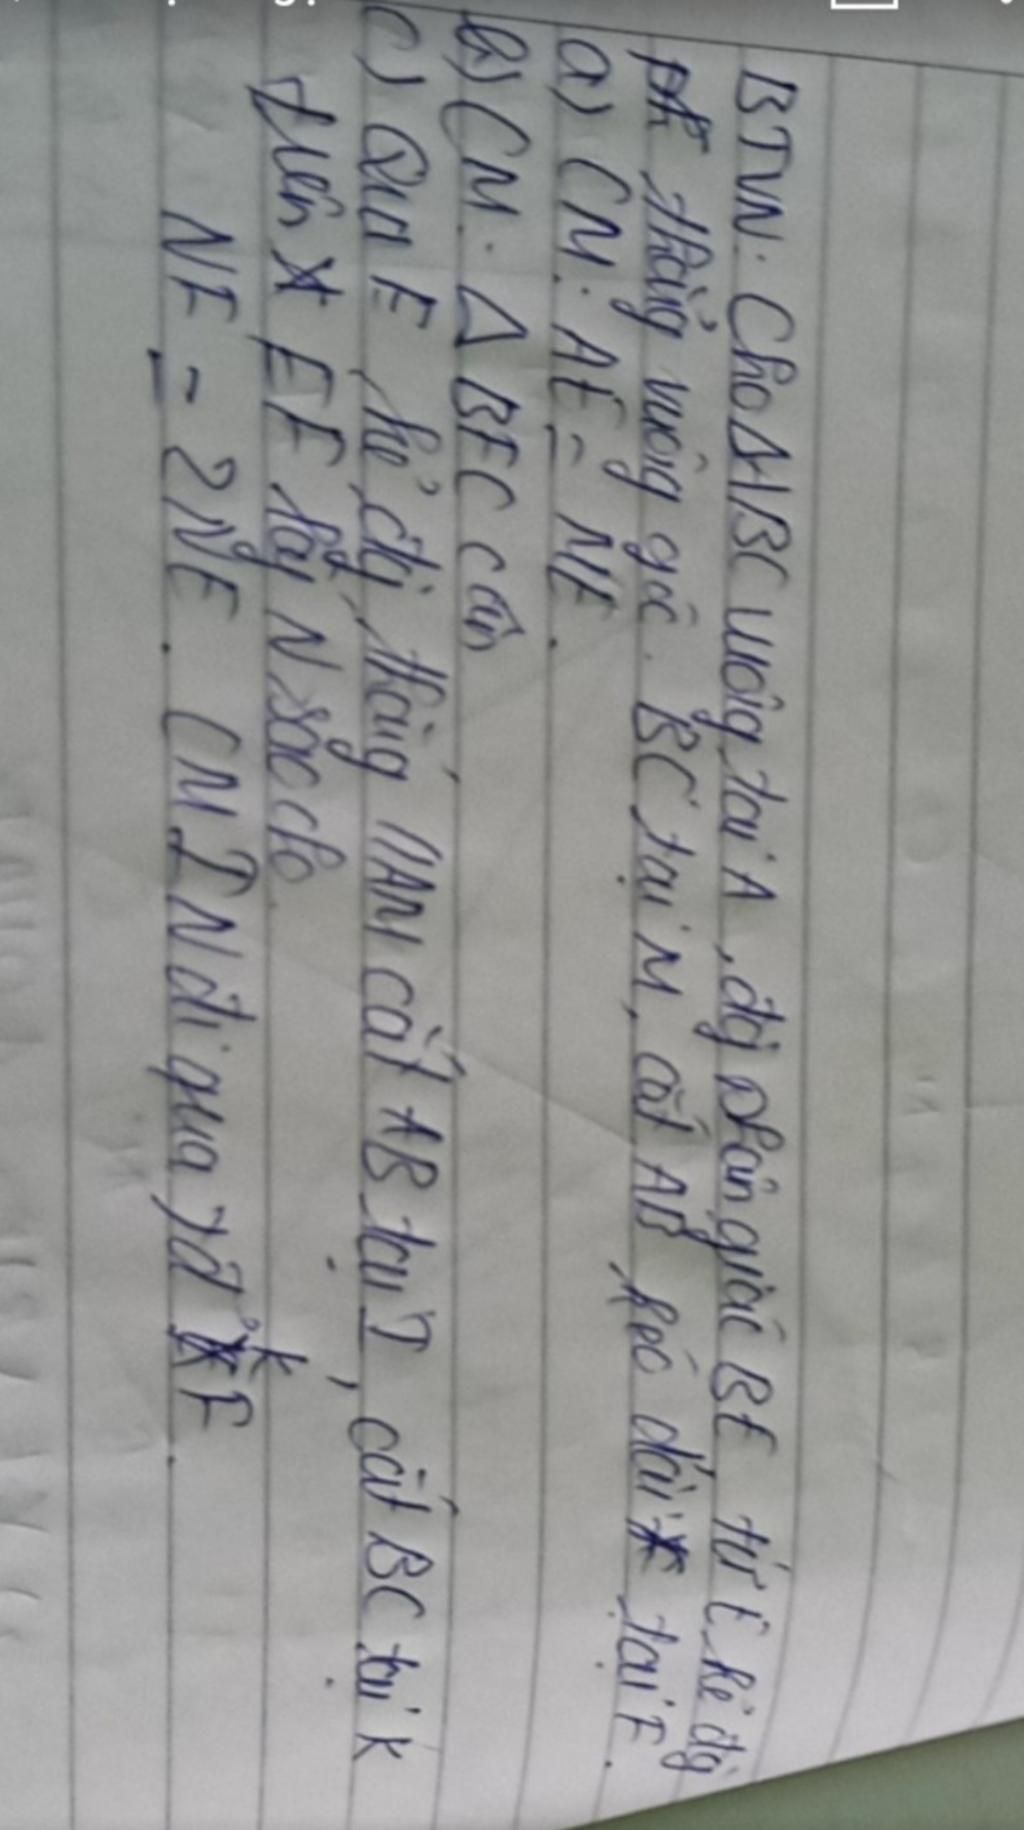 BTVN: Cho ΔABC vuông tại A, đg phân giác BE, từ E kẻ đg
thẳng vuông góc BC tại M, cắt AB kéo dài tại F.
a) CM: AE = ME.
b) CM: Δ BFC cân
c) Qua E kẻ đg thẳng // AM cắt AB tại I, cắt BC tại K
trên EF lấy N sao cho
NF = 2NE. CM IN đi qua TĐ KF.